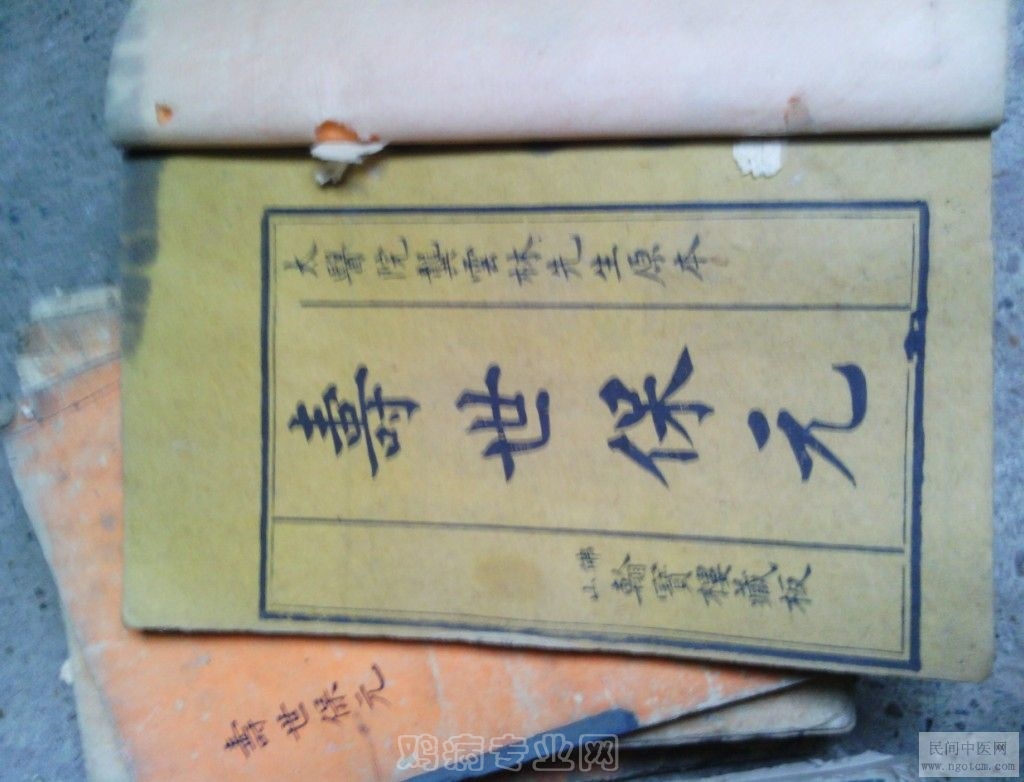 太醫院龔雲林先生原本
壽世保元
佛山
翰寶樓藏板
壽世保元
鸡病专业网
民间中医网
www.ngotcm.com